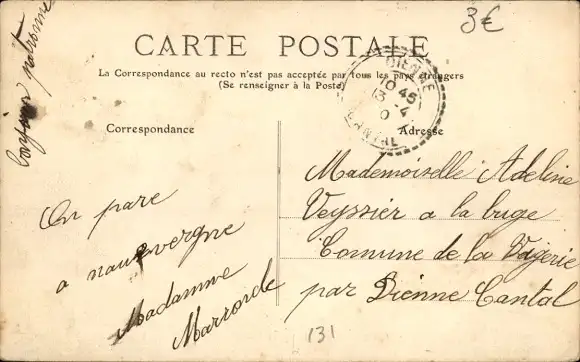 3€
CARTE POSTALE
La Correspondance au recto n'est pas acceptée par tous les pays étrangers
(Se renseigner à la Poste)
DIENNE
10 45
13 - 4
CANTAL
Correspondance
Adresse
On pare
a nauvergne
Madamme
Marronde
Mademoiselle Adeline
Veyssier a la buge
Comune de la Vigerie
par Dienne Cantal
131